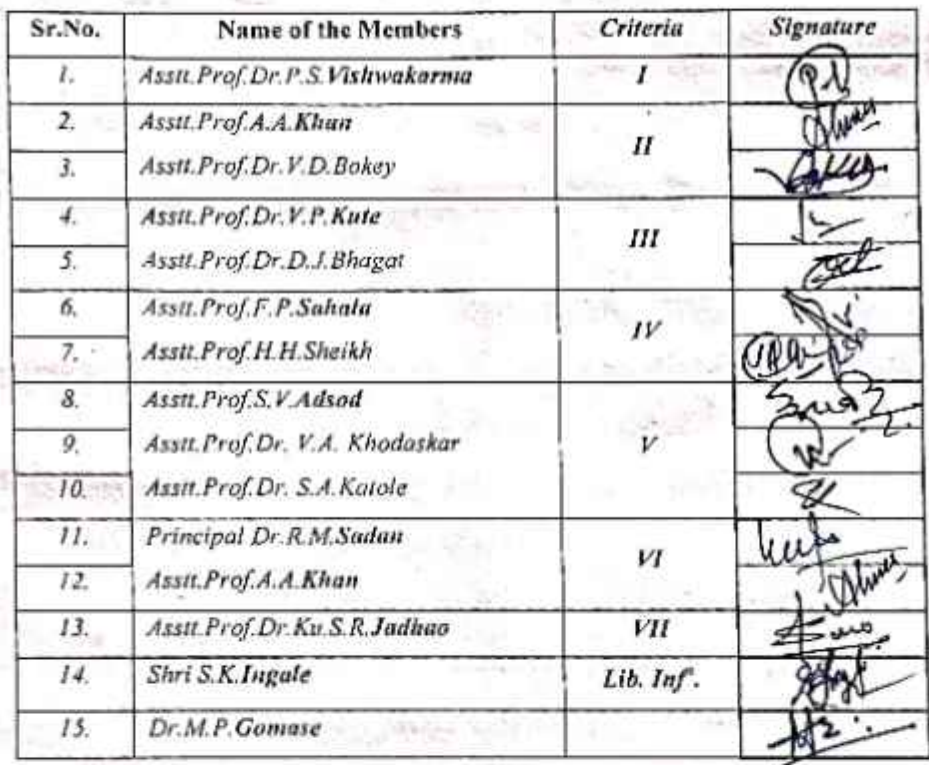 Sr.No. Name of the Members Criteria Signature
1. Asstt.Prof.Dr.P.S.Vishwakarma I
2. Asstt.Prof.A.A.Khan
II
3. Asstt.Prof.Dr.V.D.Bokey
4. Asstt.Prof.Dr.V.P.Kute
III
5. Asstt.Prof.Dr.D.J.Bhagat
6. Asstt.Prof.F.P.Sahala
IV
7. Asstt.Prof.H.H.Sheikh
8. Asstt.Prof.S.V.Adsod
9. Asstt.Prof.Dr. V.A. Khodaskar V
10. Asstt.Prof.Dr. S.A.Katole
11. Principal Dr.R.M.Sadan
VI
12. Asstt.Prof.A.A.Khan
13. Asstt.Prof.Dr.Ku.S.R.Jadhao VII
14. Shri S.K.Ingale Lib. Inf.
15. Dr.M.P.Gomase